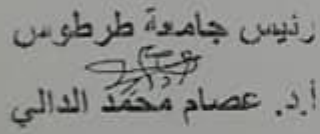 رئيس جامعة طرطوس
أ.د. عصام محمد الدالي